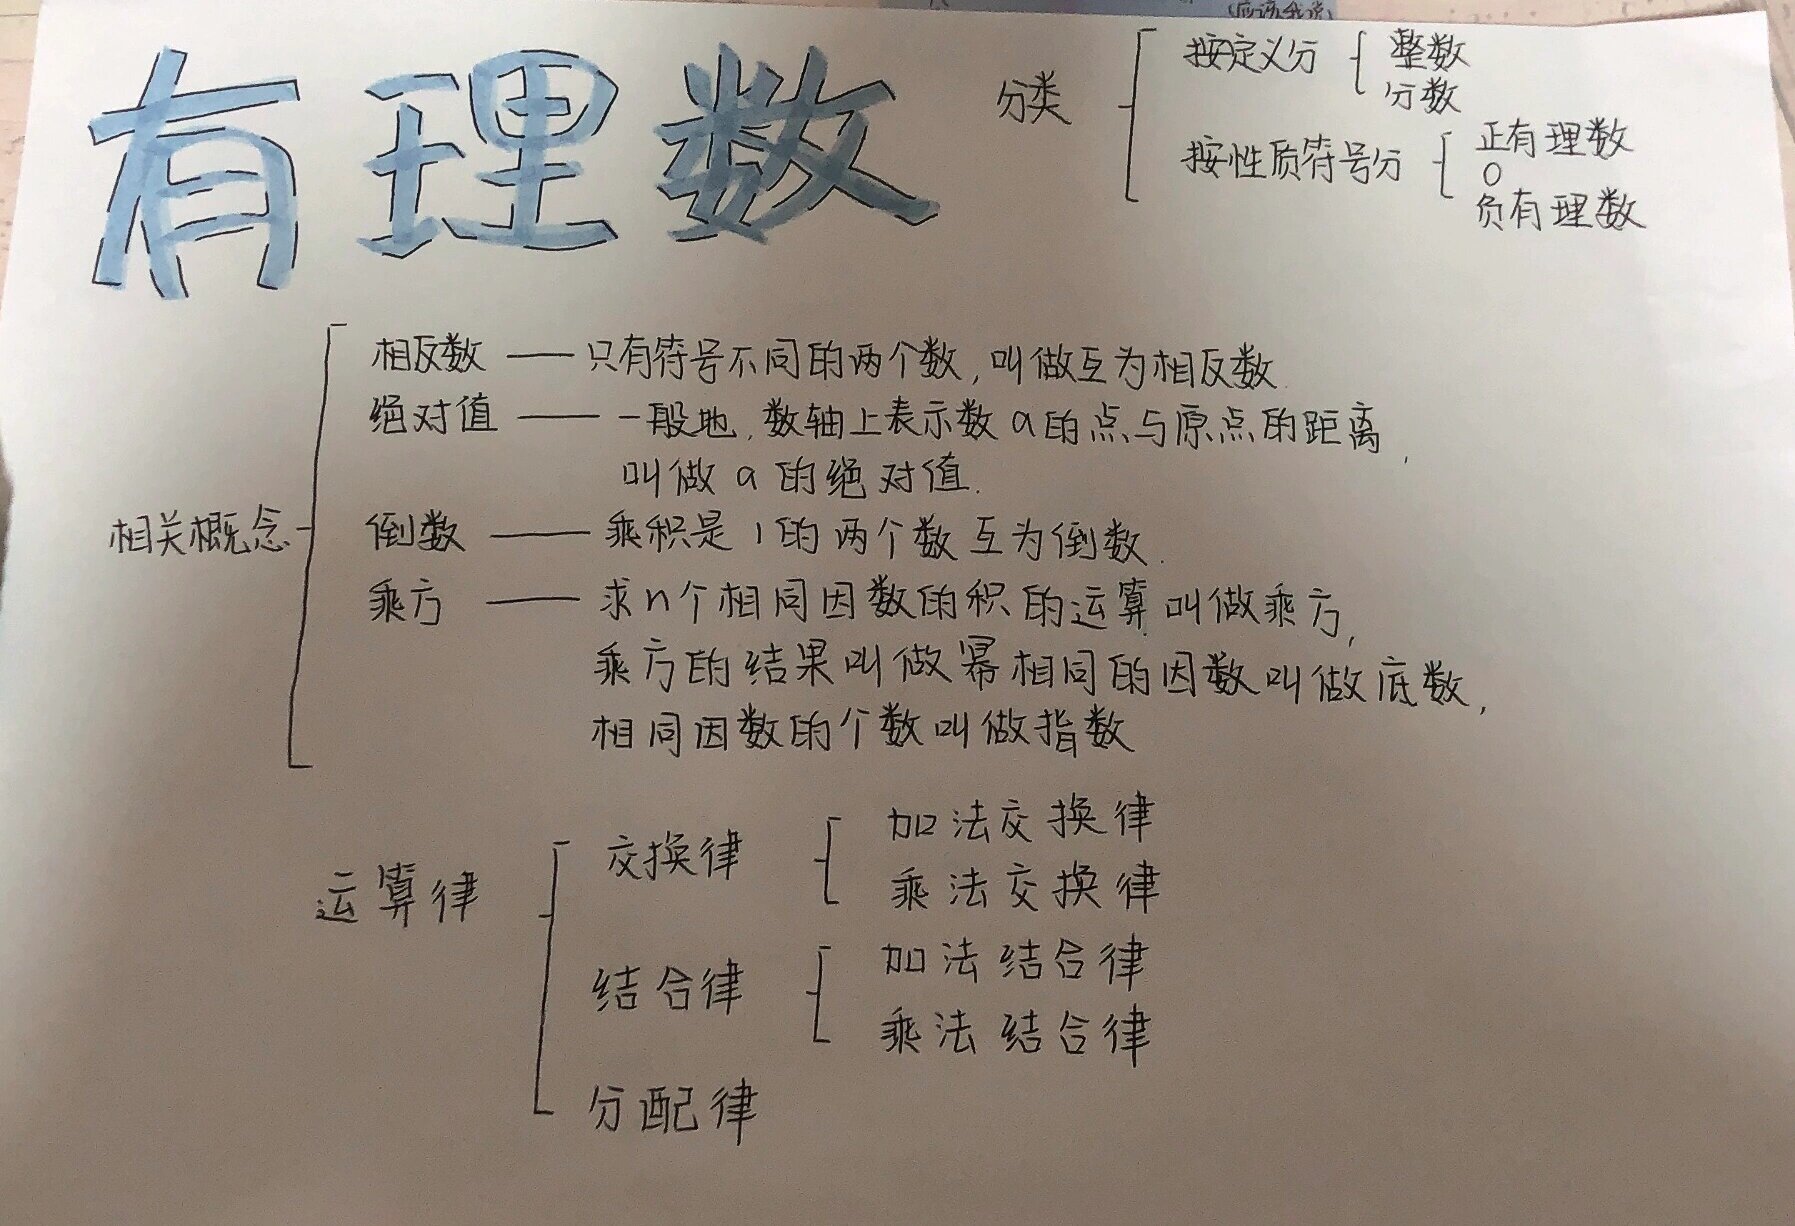 (应该能说)
有理数
分类
按定义分
整数
分数
按性质符号分
正有理数
0
负有理数
相关概念
相反数 —— 只有符号不同的两个数,叫做互为相反数.
绝对值 —— 一般地,数轴上表示数a的点与原点的距离,
叫做a的绝对值.
倒数 —— 乘积是1的两个数互为倒数.
乘方 —— 求n个相同因数的积的运算叫做乘方,
乘方的结果叫做幂相同的因数叫做底数,
相同因数的个数叫做指数
运算律
交换律
加法交换律
乘法交换律
结合律
加法结合律
乘法结合律
分配律